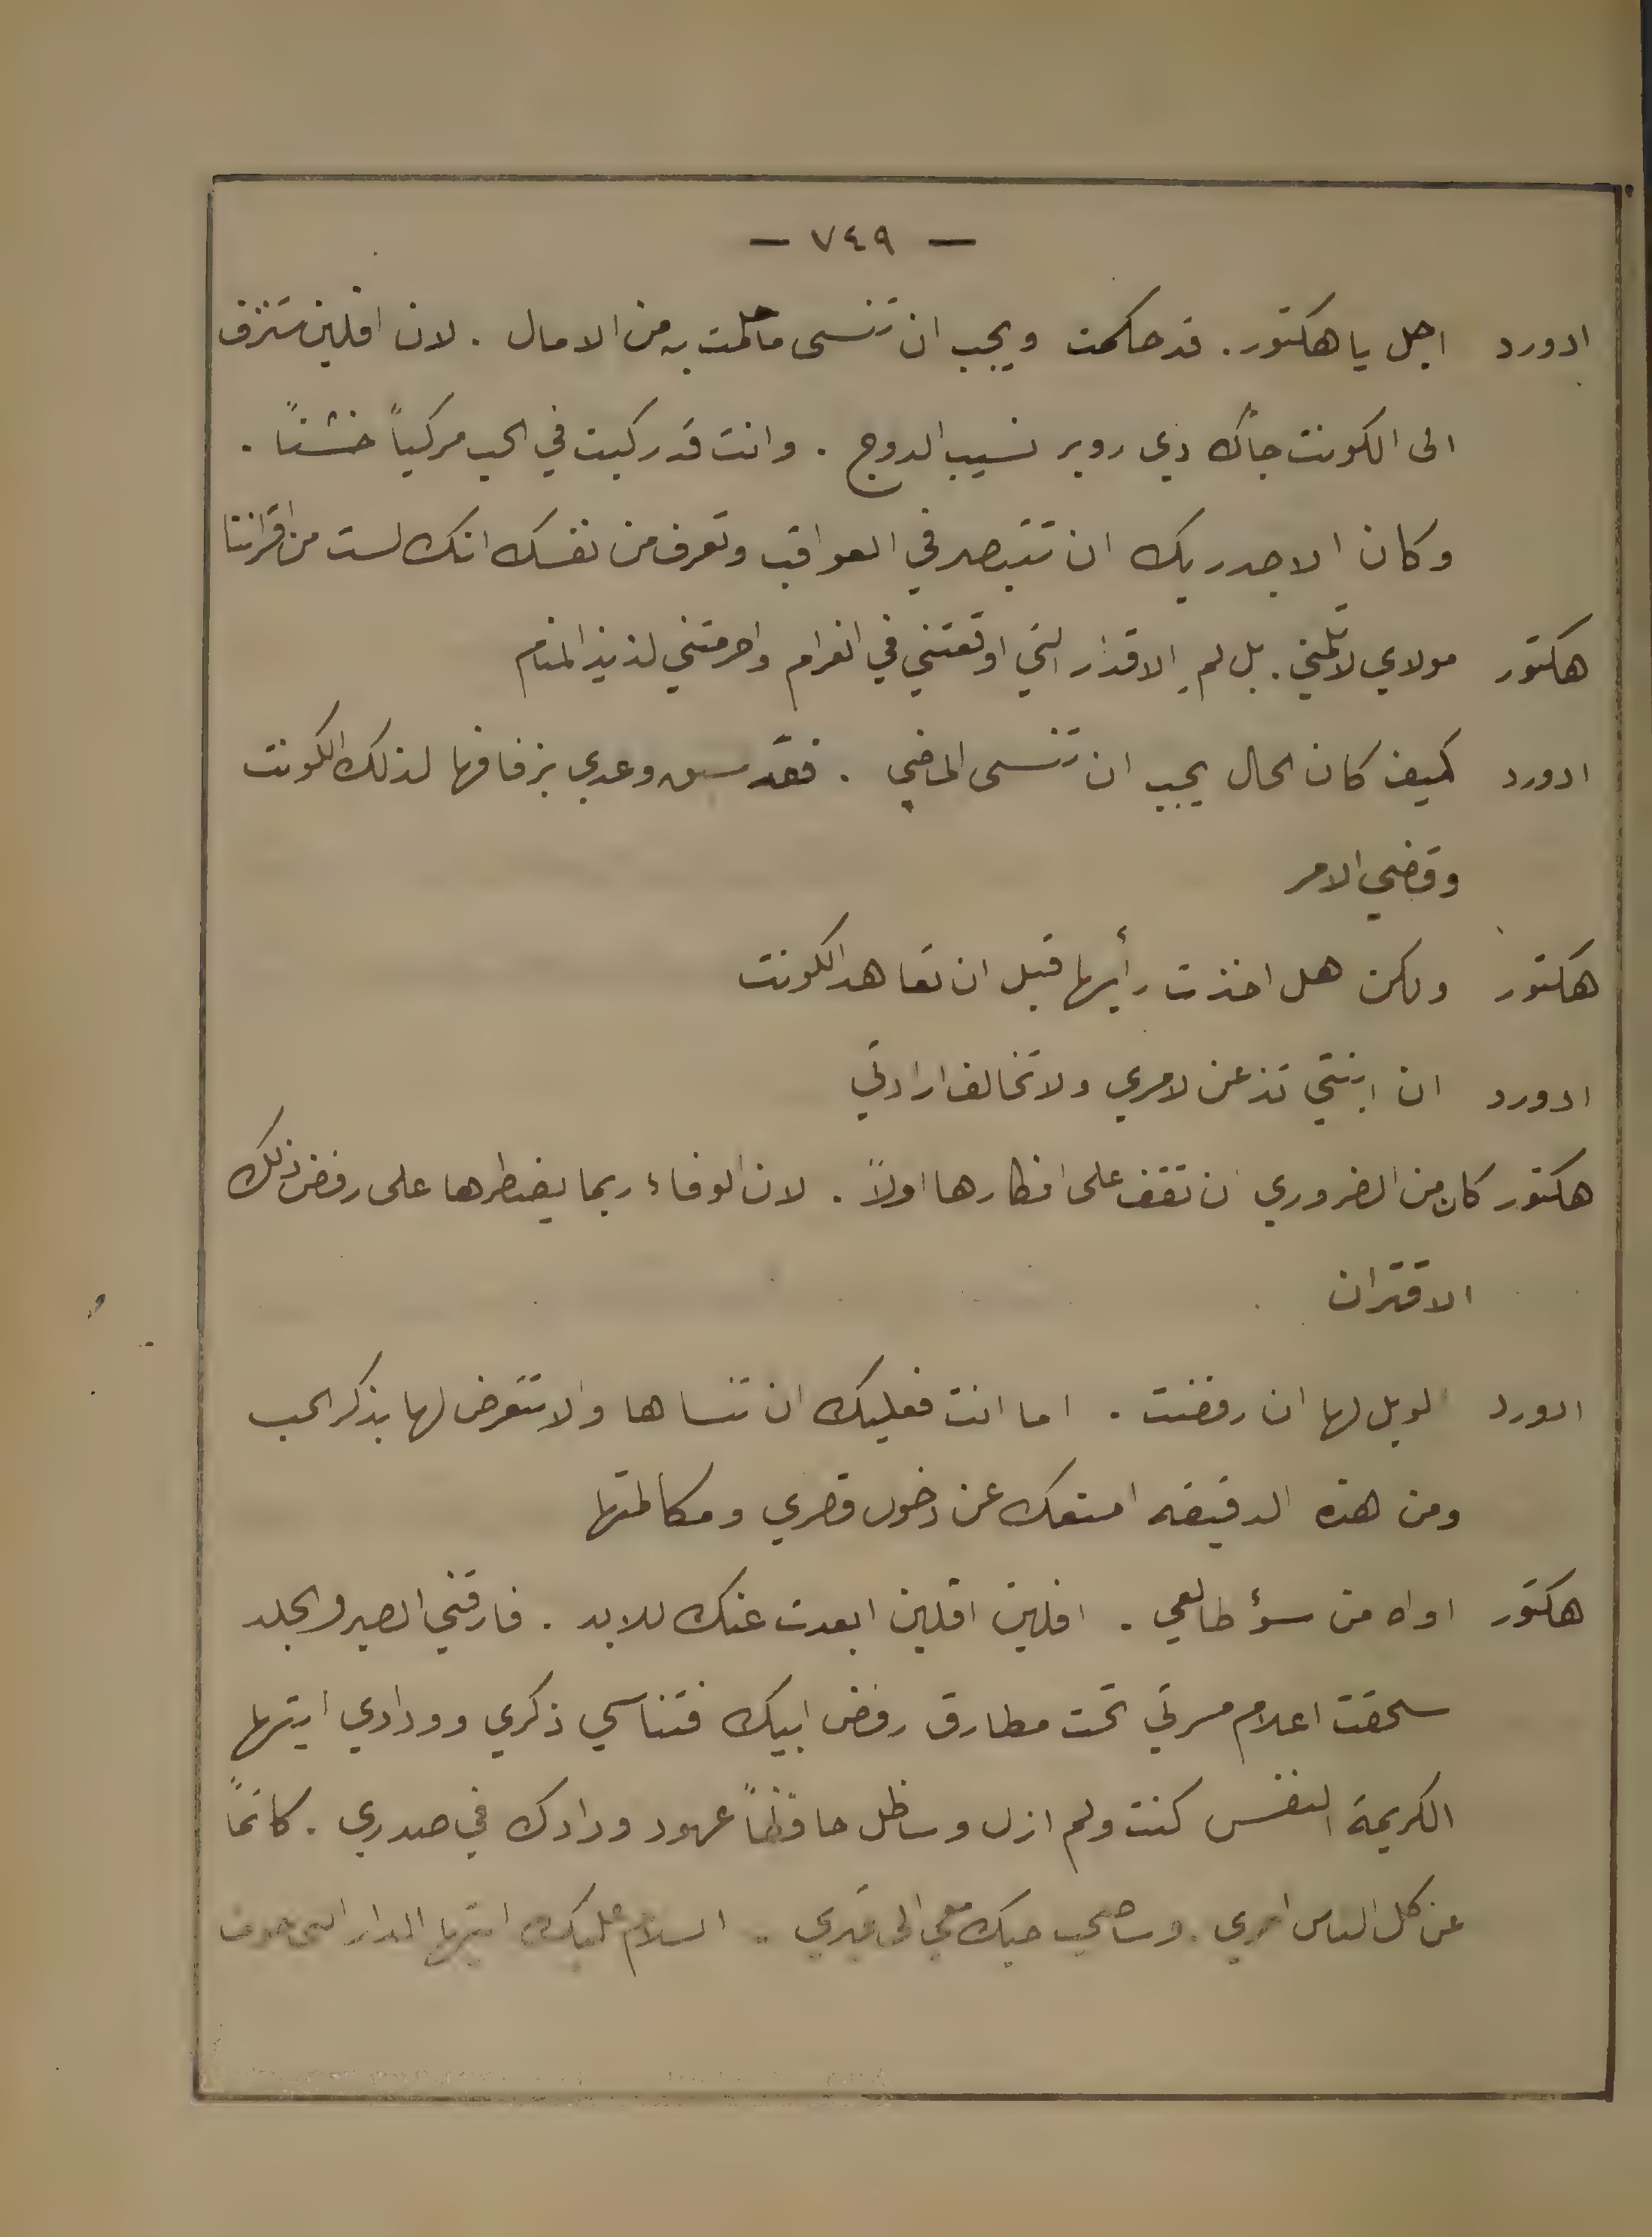 — ٧٤٩ —
ادورد اجل يا هكتور . قد حكمت ويجب ان تنسى ما حلمت به من الامال . لان افلين ستزف
الى الكونت جاك دي روبر نسيب الدوج . وانت قد ركبت في الحب مركباً خشناً .
وكان الاجدر بك ان تتبصر في العواقب وتعرف من نفسك انك لست من اقراننا
هكتور مولاي لا تلمني . بل لم الاقدار التي اوقعتني في الغرام واحرمتني لذيذ المنام
ادورد كيف كان الحال يجب ان تنسى الماضي . فقد سبق وعدي بزفافها لذلك الكونت
وقضي الامر
هكتور ولكن هل اخذت رأيها قبل ان تعاهد الكونت
ادورد ان ابنتي تذعن لامري ولا تخالف ارادتي
هكتور كان من الضروري ان تقف على افكارها اولاً . لان الوفاء ربما يضطرها على رفض ذلك
الاقتران
ادورد الويل لها ان رفضت . اما انت فعليك ان تنساها ولا تتعرض لها بذكر الحب
ومن هذه الدقيقه امنعك عن دخول قصري ومكالمتها
هكتور اواه من سؤ طالعي . افلين افلين ابعدت عنك للابد . فارقني الصبر والجلد
سحقت اعلام مسرتي تحت مطارق رفض ابيك فتناسي ذكري وودادي ايتها
الكريمة النفس كنت ولم ازل وساظل حافظاً عهود ودادك في صدري . كاتماً
عن كل الناس امري . وساصحب حبك معي الى قبري . السلام عليك ايتها الدار التي